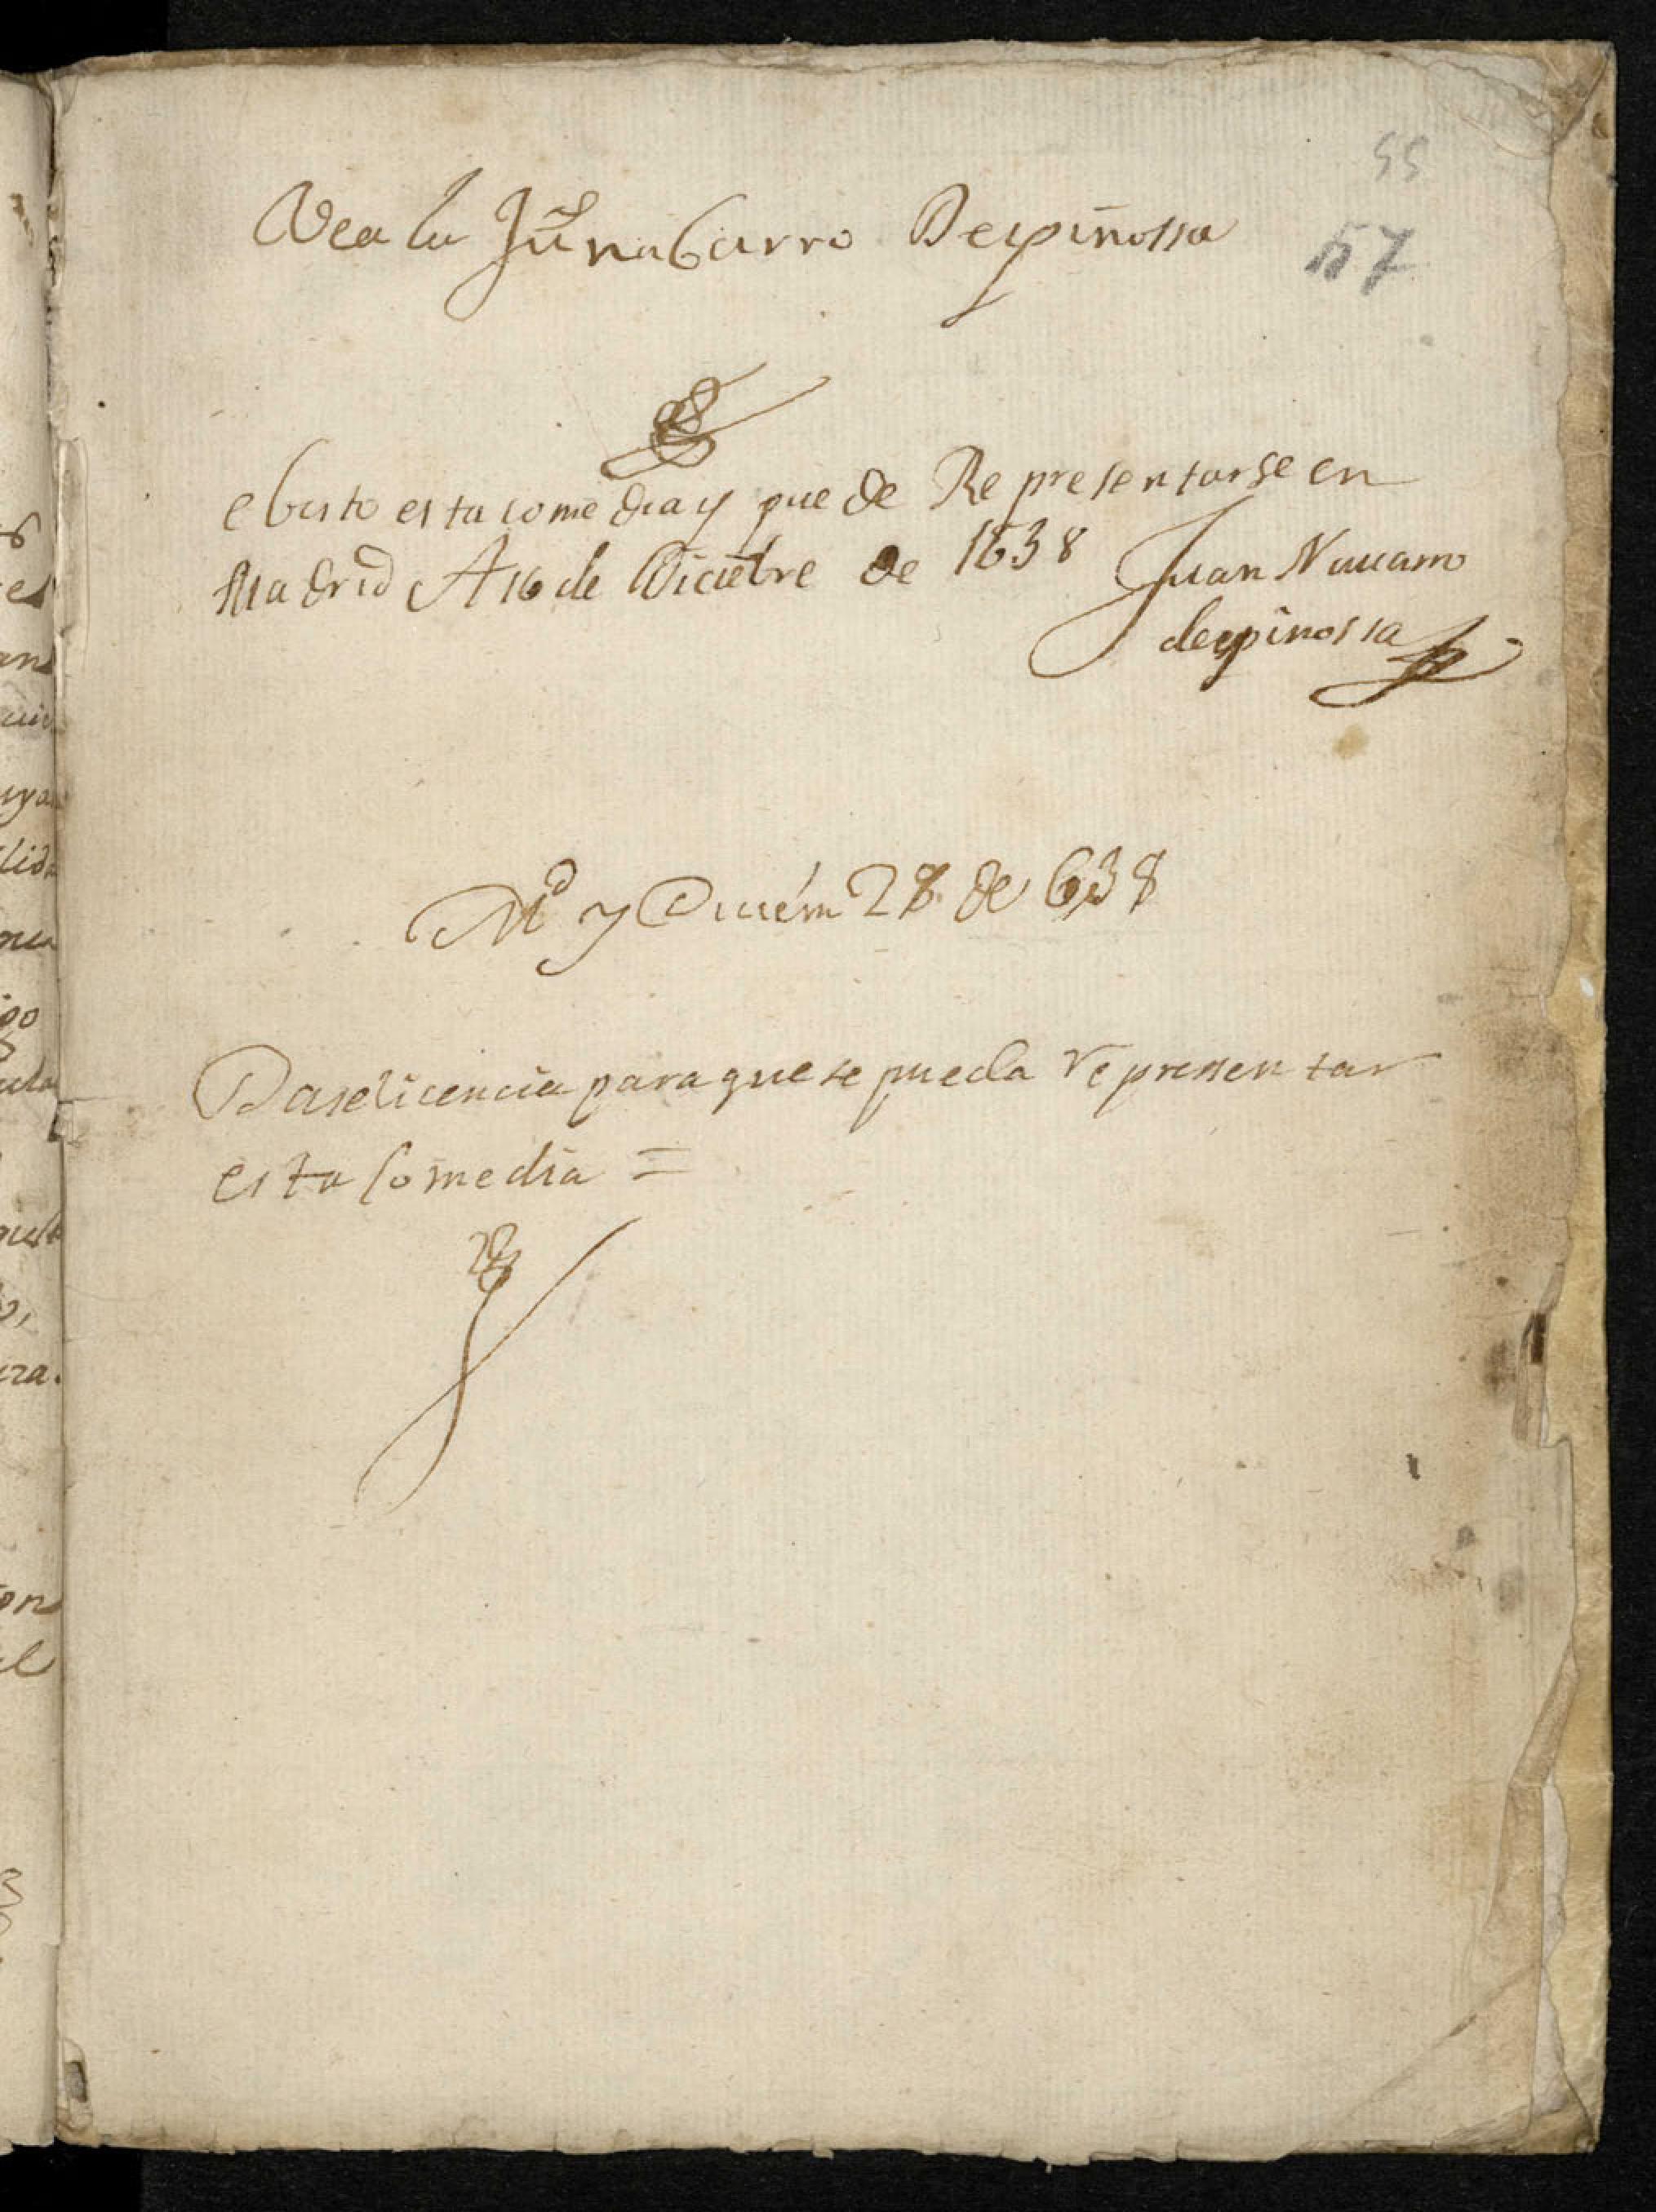 55
Veala Juº nabarro Despinossa
57
e bisto esta comedia y puede Representarse en
Madrid A 16 de Diciēbre de 1638 Juan Nauarro
despinossa
Md y Diciem 28 de 638
Daselicencia para que se pueda representar
esta Comedia =